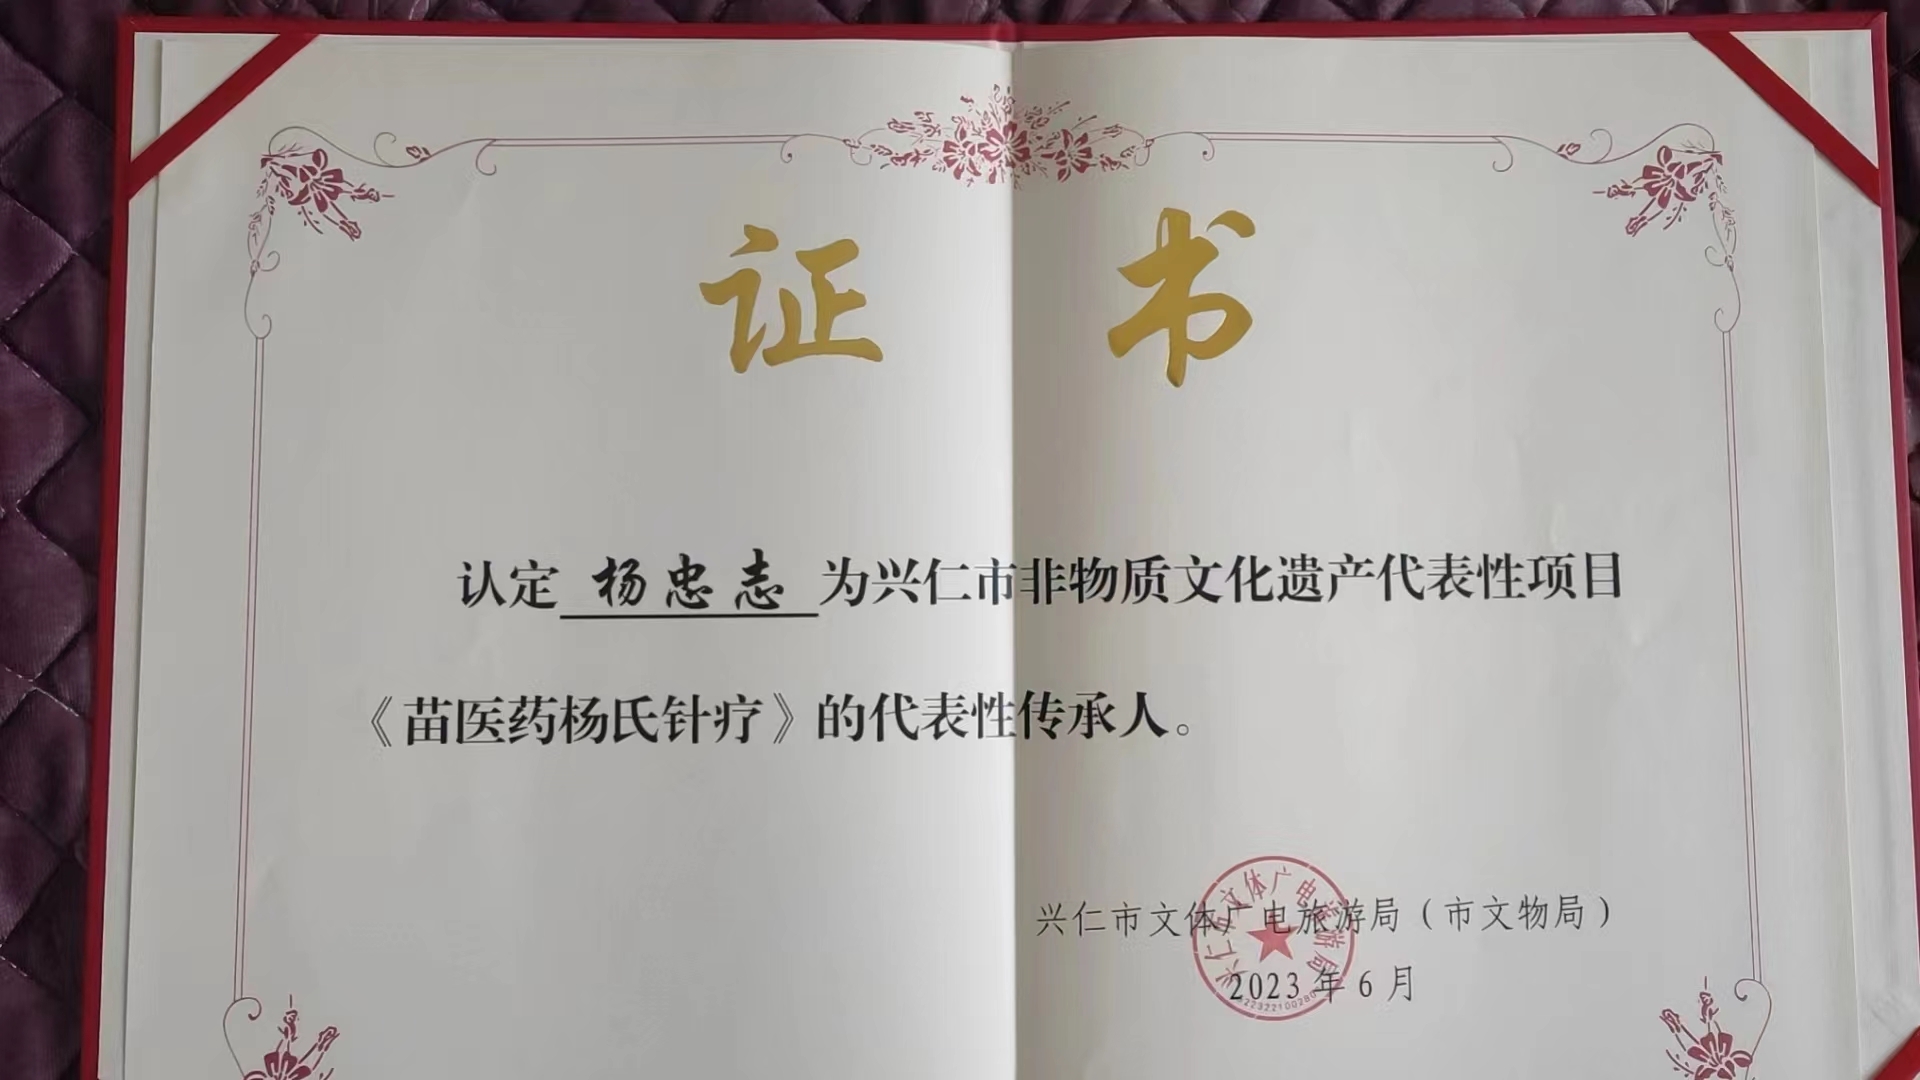 证书
认定 杨忠志 为兴仁市非物质文化遗产代表性项目
《苗医药杨氏针疗》的代表性传承人。
兴仁市文体广电旅游局（市文物局）
2023年6月
兴仁市文体广电旅游局